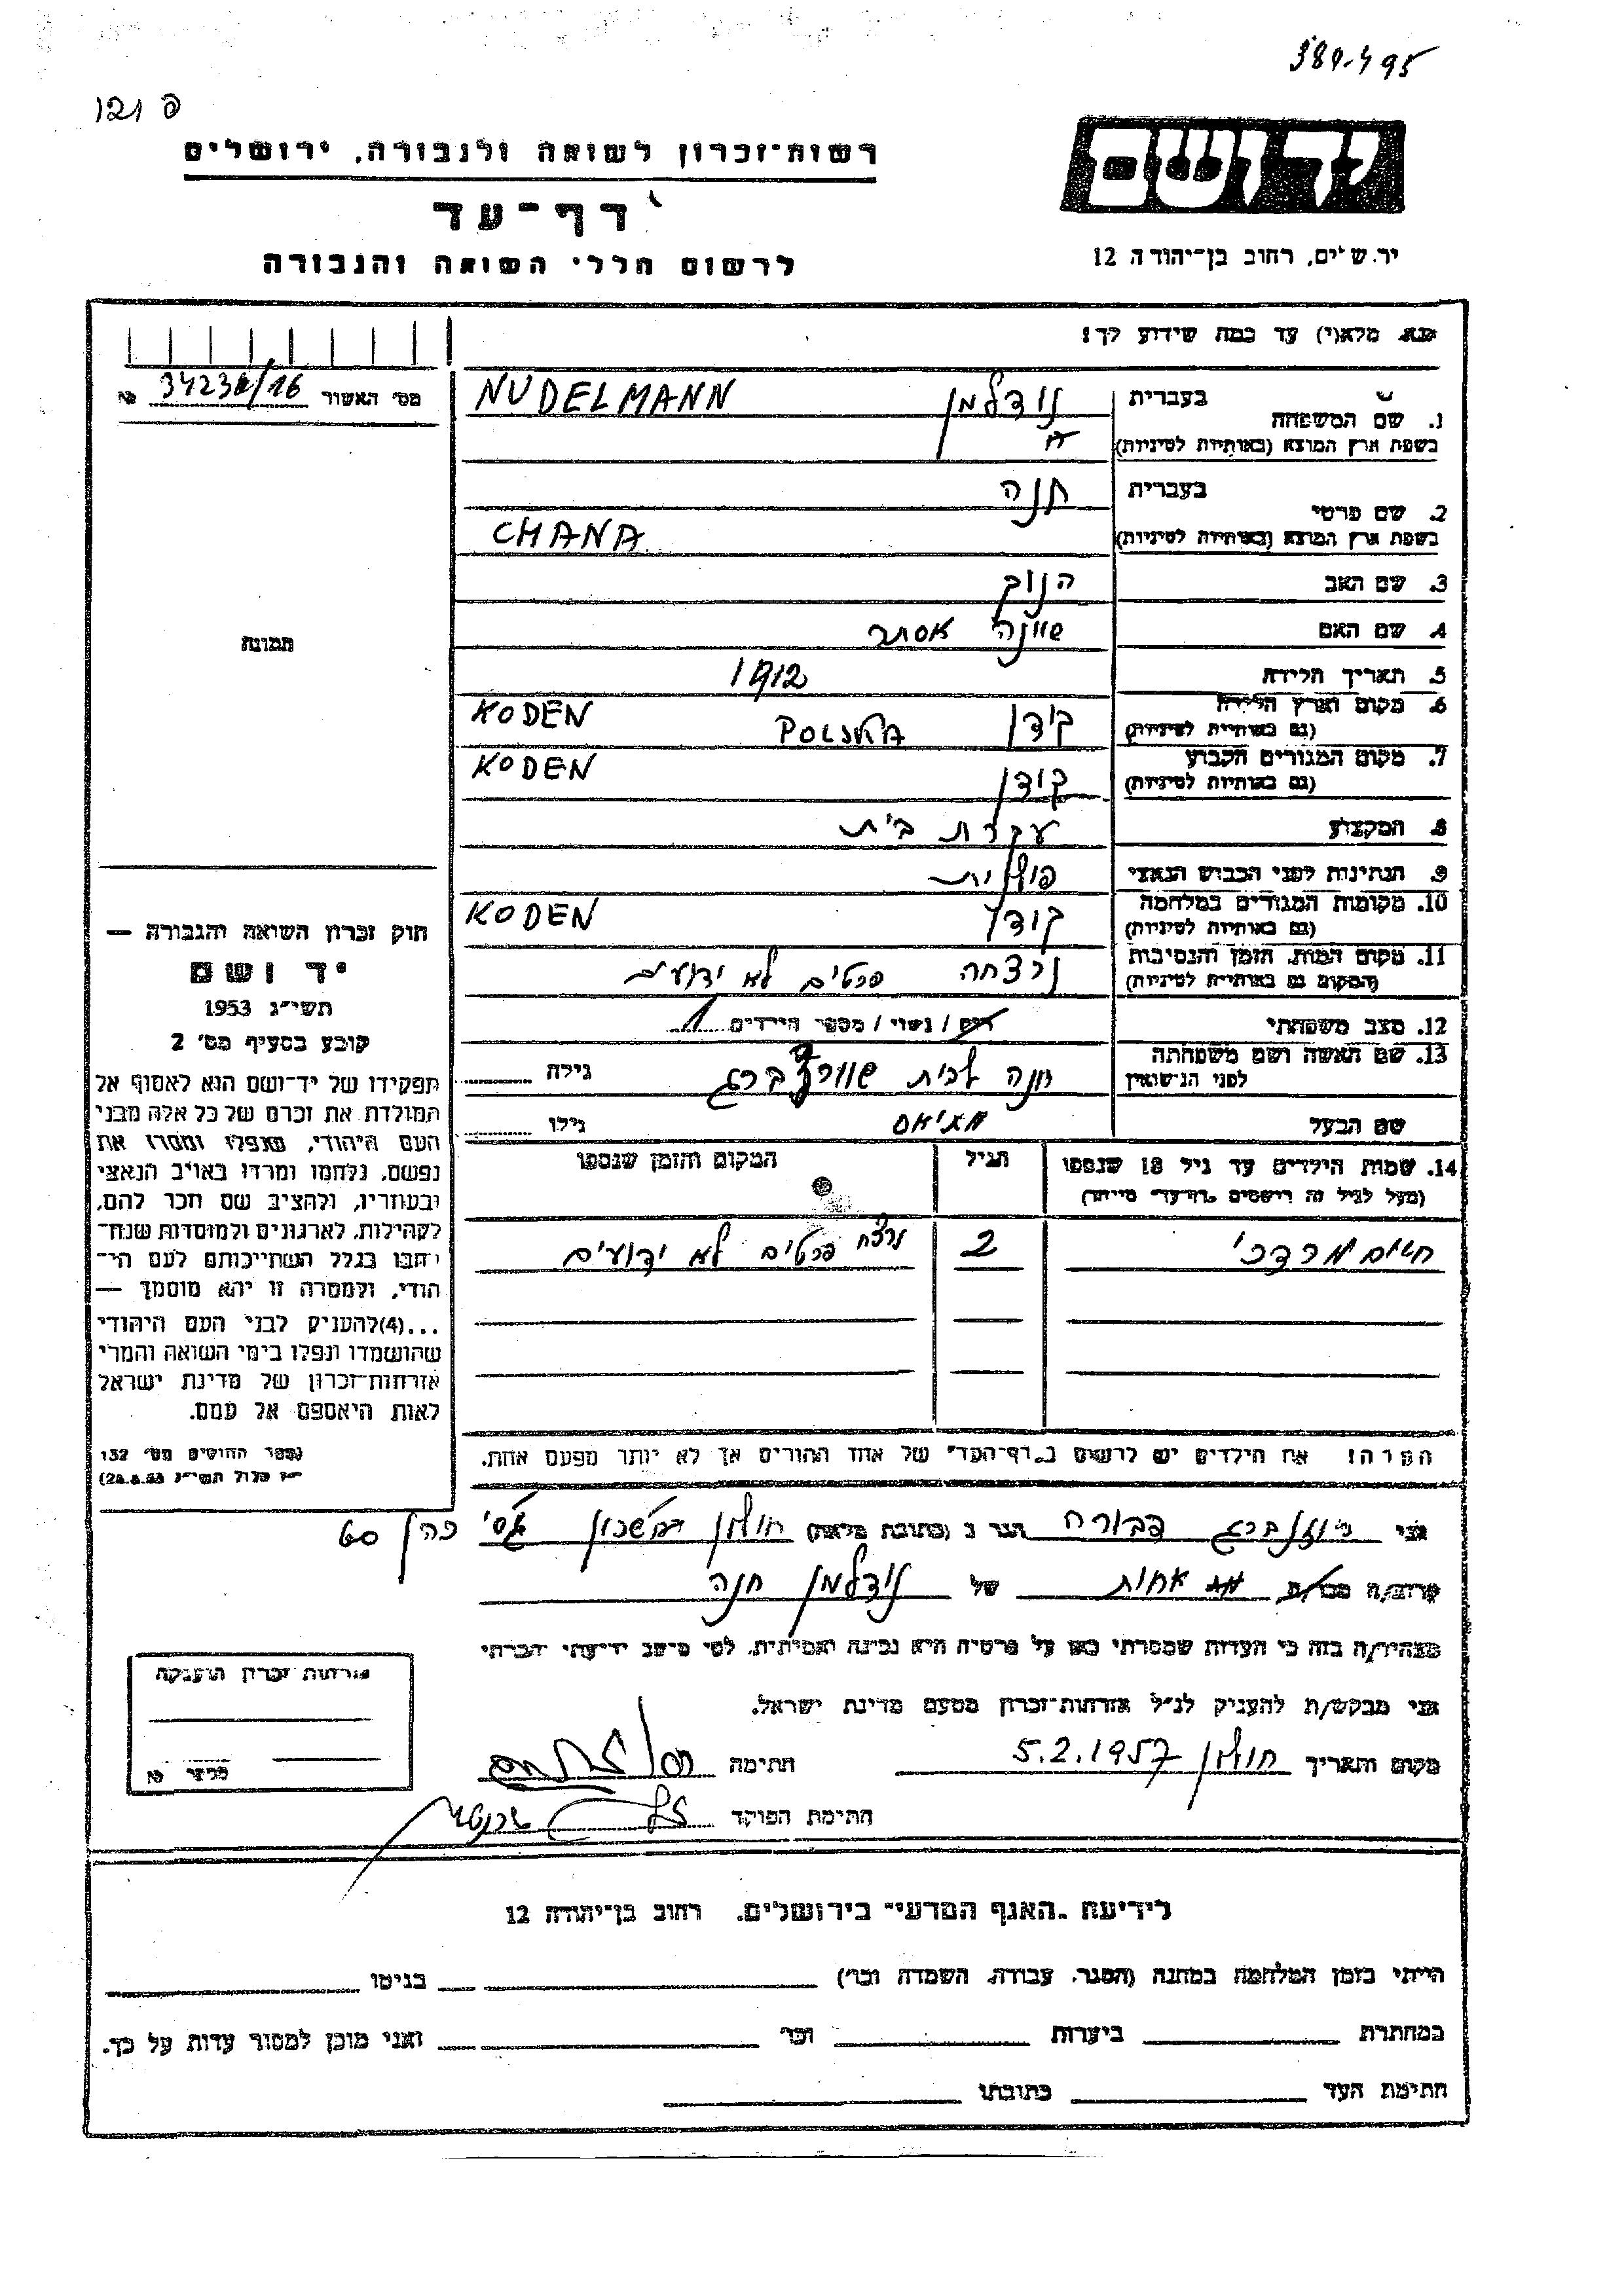 389-495
121 פ
יד ושם
רשות־זכרון לשואה ולגבורה, ירושלים
דף־עד
לרשום חללי השואה והגבורה
רחוב בן־יהודה 12
נא מלא(י) עד כמה שידוע לך!
מס' האשור 34232/16 №
1. שם המשפחה בעברית נודלמן NUDELMANN
בשפת ארץ המוצא (באותיות לטיניות)
2. שם פרטי בעברית חנה
בשפת ארץ המוצא (באותיות לטיניות) CHANA
3. שם האב הנוך
4. שם האם שיינה אסתר
5. תאריך הלידה 1912
6. מקום וארץ הלידה קודן POLSKA KODEN
(גם באותיות לטיניות)
7. מקום המגורים הקבוע קודן KODEN
(גם באותיות לטיניות)
8. המקצוע עקרת בית
9. הנתינות לפני הכבוש הנאצי פולנית
10. מקומות המגורים במלחמה קודן KODEN
(גם באותיות לטיניות)
11. מקום המות, הזמן והנסיבות נרצחה פרטים לא ידועים
(המקום גם באותיות לטיניות)
12. מצב משפחתי רווק / נשוי / מספר הילדים 1
13. שם האשה ושם משפחתה חנה לבית שוורצברג גילה
לפני הנישואין
שם הבעל גילו
14. שמות הילדים עד גיל 18 שנספו הגיל המקום והזמן שנספו
(מעל לגיל זה רושמים "דף־עד" מיוחד)
חיים מרדכי 2 נרצח פרטים לא ידועים
הערה! את הילדים יש לרשום ב"דף־העד" של אחד ההורים אך לא יותר מפעם אחת.
תמונה
חוק זכרון השואה והגבורה —
יד ושם
תשי"ג 1953
קובע בסעיף מס' 2
תפקידו של יד־ושם הוא לאסוף אל
המולדת את זכרם של כל אלה מבני
העם היהודי, שנפלו ומסרו את
נפשם, נלחמו ומרדו באויב הנאצי
ובעוזריו, ולהציב שם וזכר להם,
לקהילות, לארגונים ולמוסדות שנח־
רבו בגלל השתייכותם לעם הי־
הודי, ולמטרה זו יהא מוסמך —
...(4)להעניק לבני העם היהודי
שהושמדו ונפלו בימי השואה והמרי
אזרחות־זכרון של מדינת ישראל
לאות היאספם אל עמם.
(ספר החוקים מס' 132
אלול תשי"ג 28.8.53)
אני רוזנברג דבורה הגר ב (כתובת מלאה) חולון כהן 60
קרוב/ה מכר/ה אחות של נודלמן חנה
מצהיר/ה בזה כי העדות שמסרתי כאן על פרטיה היא נכונה ואמיתית, לפי מיטב ידיעתי והכרתי
אני מבקש/ת להעניק לנ"ל אזרחות־זכרון מטעם מדינת ישראל.
מקום ותאריך חולון 5.2.1957 חתימה
חתימת הפוקד
אזרחות זכרון הוענקה
№
לידיעת "האגף המדעי" בירושלים, רחוב בן־יהודה 12
הייתי בזמן המלחמה במחנה (הסגר, עבודה, השמדה וכו') בגיטו
במחתרת ביערות וכו' ואני מוכן למסור עדות על כך.
חתימת העד כתובתו